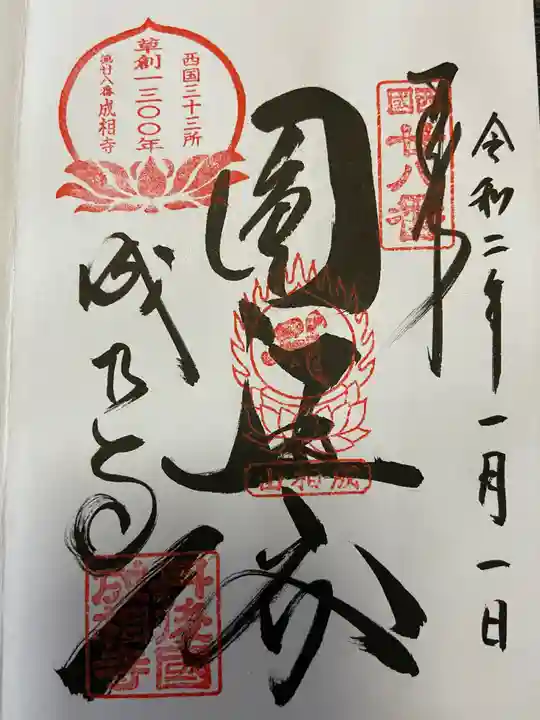 令和二年一月一日
奉拝
西国
廿八番
西国三十三所
草創一三〇〇年
第廿八番 成相寺
圓通閣
成相山
成相寺
丹後国
成相寺